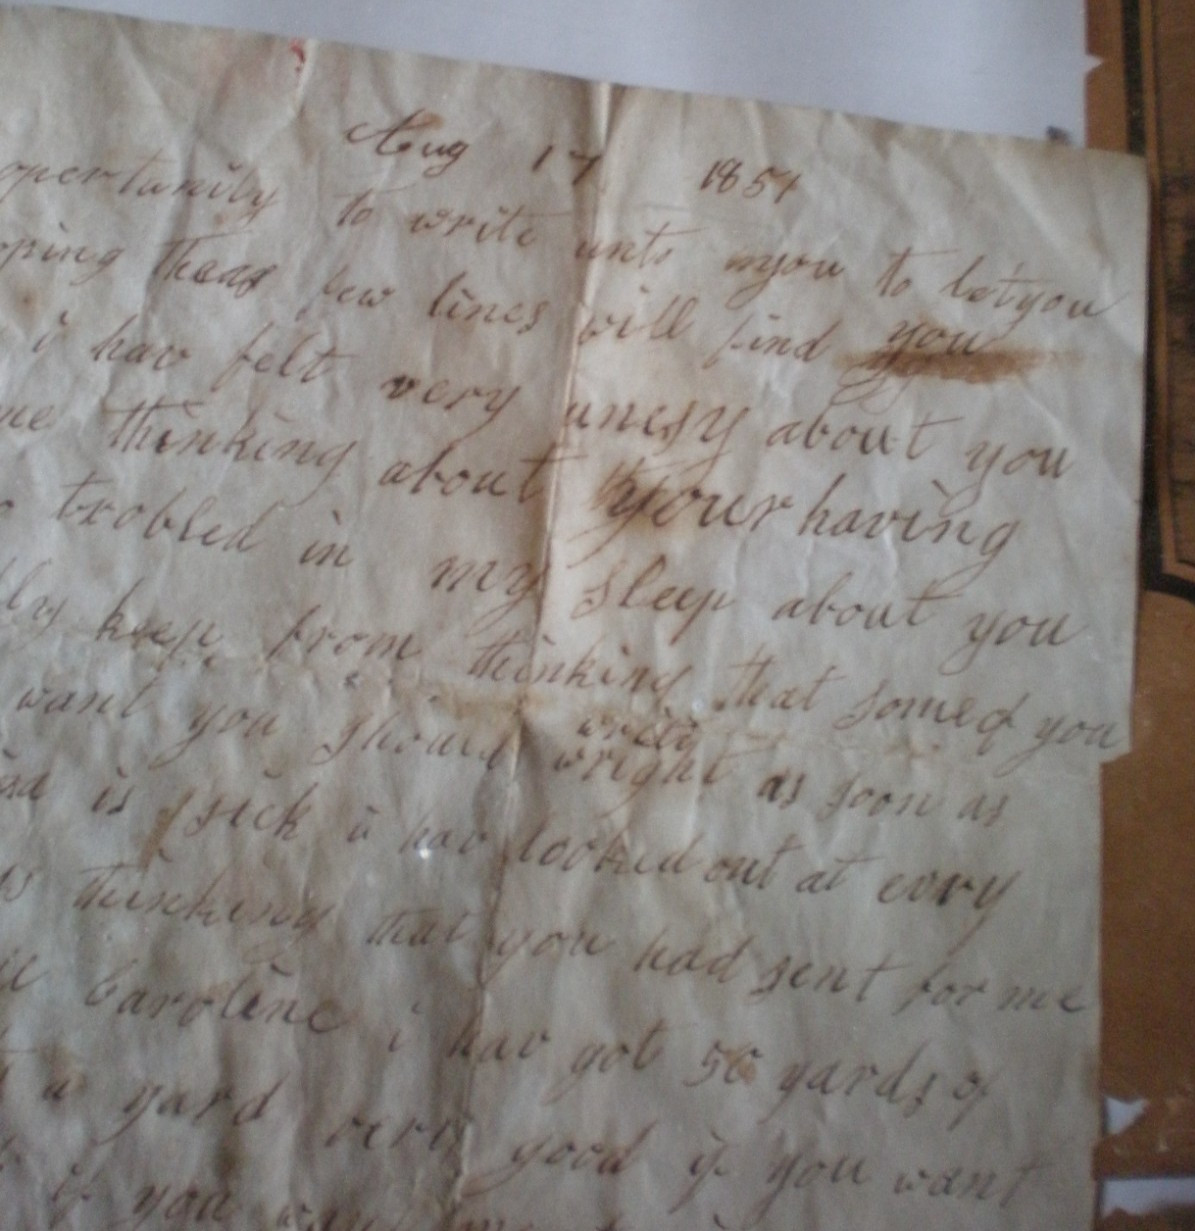 Aug 17 1851
opertunity to write unto myou to let you
oping theas few lines will find you
i hav felt very unesy about you
me thinking about your having
trobled in my sleep about you
dly keep from thinking that some of you
want you should write wright as soon as
is sick i hav looked out at evry
thinking that you had sent for me
Caroline i hav got 50 yards of
a yard very good if you want
if you want me to